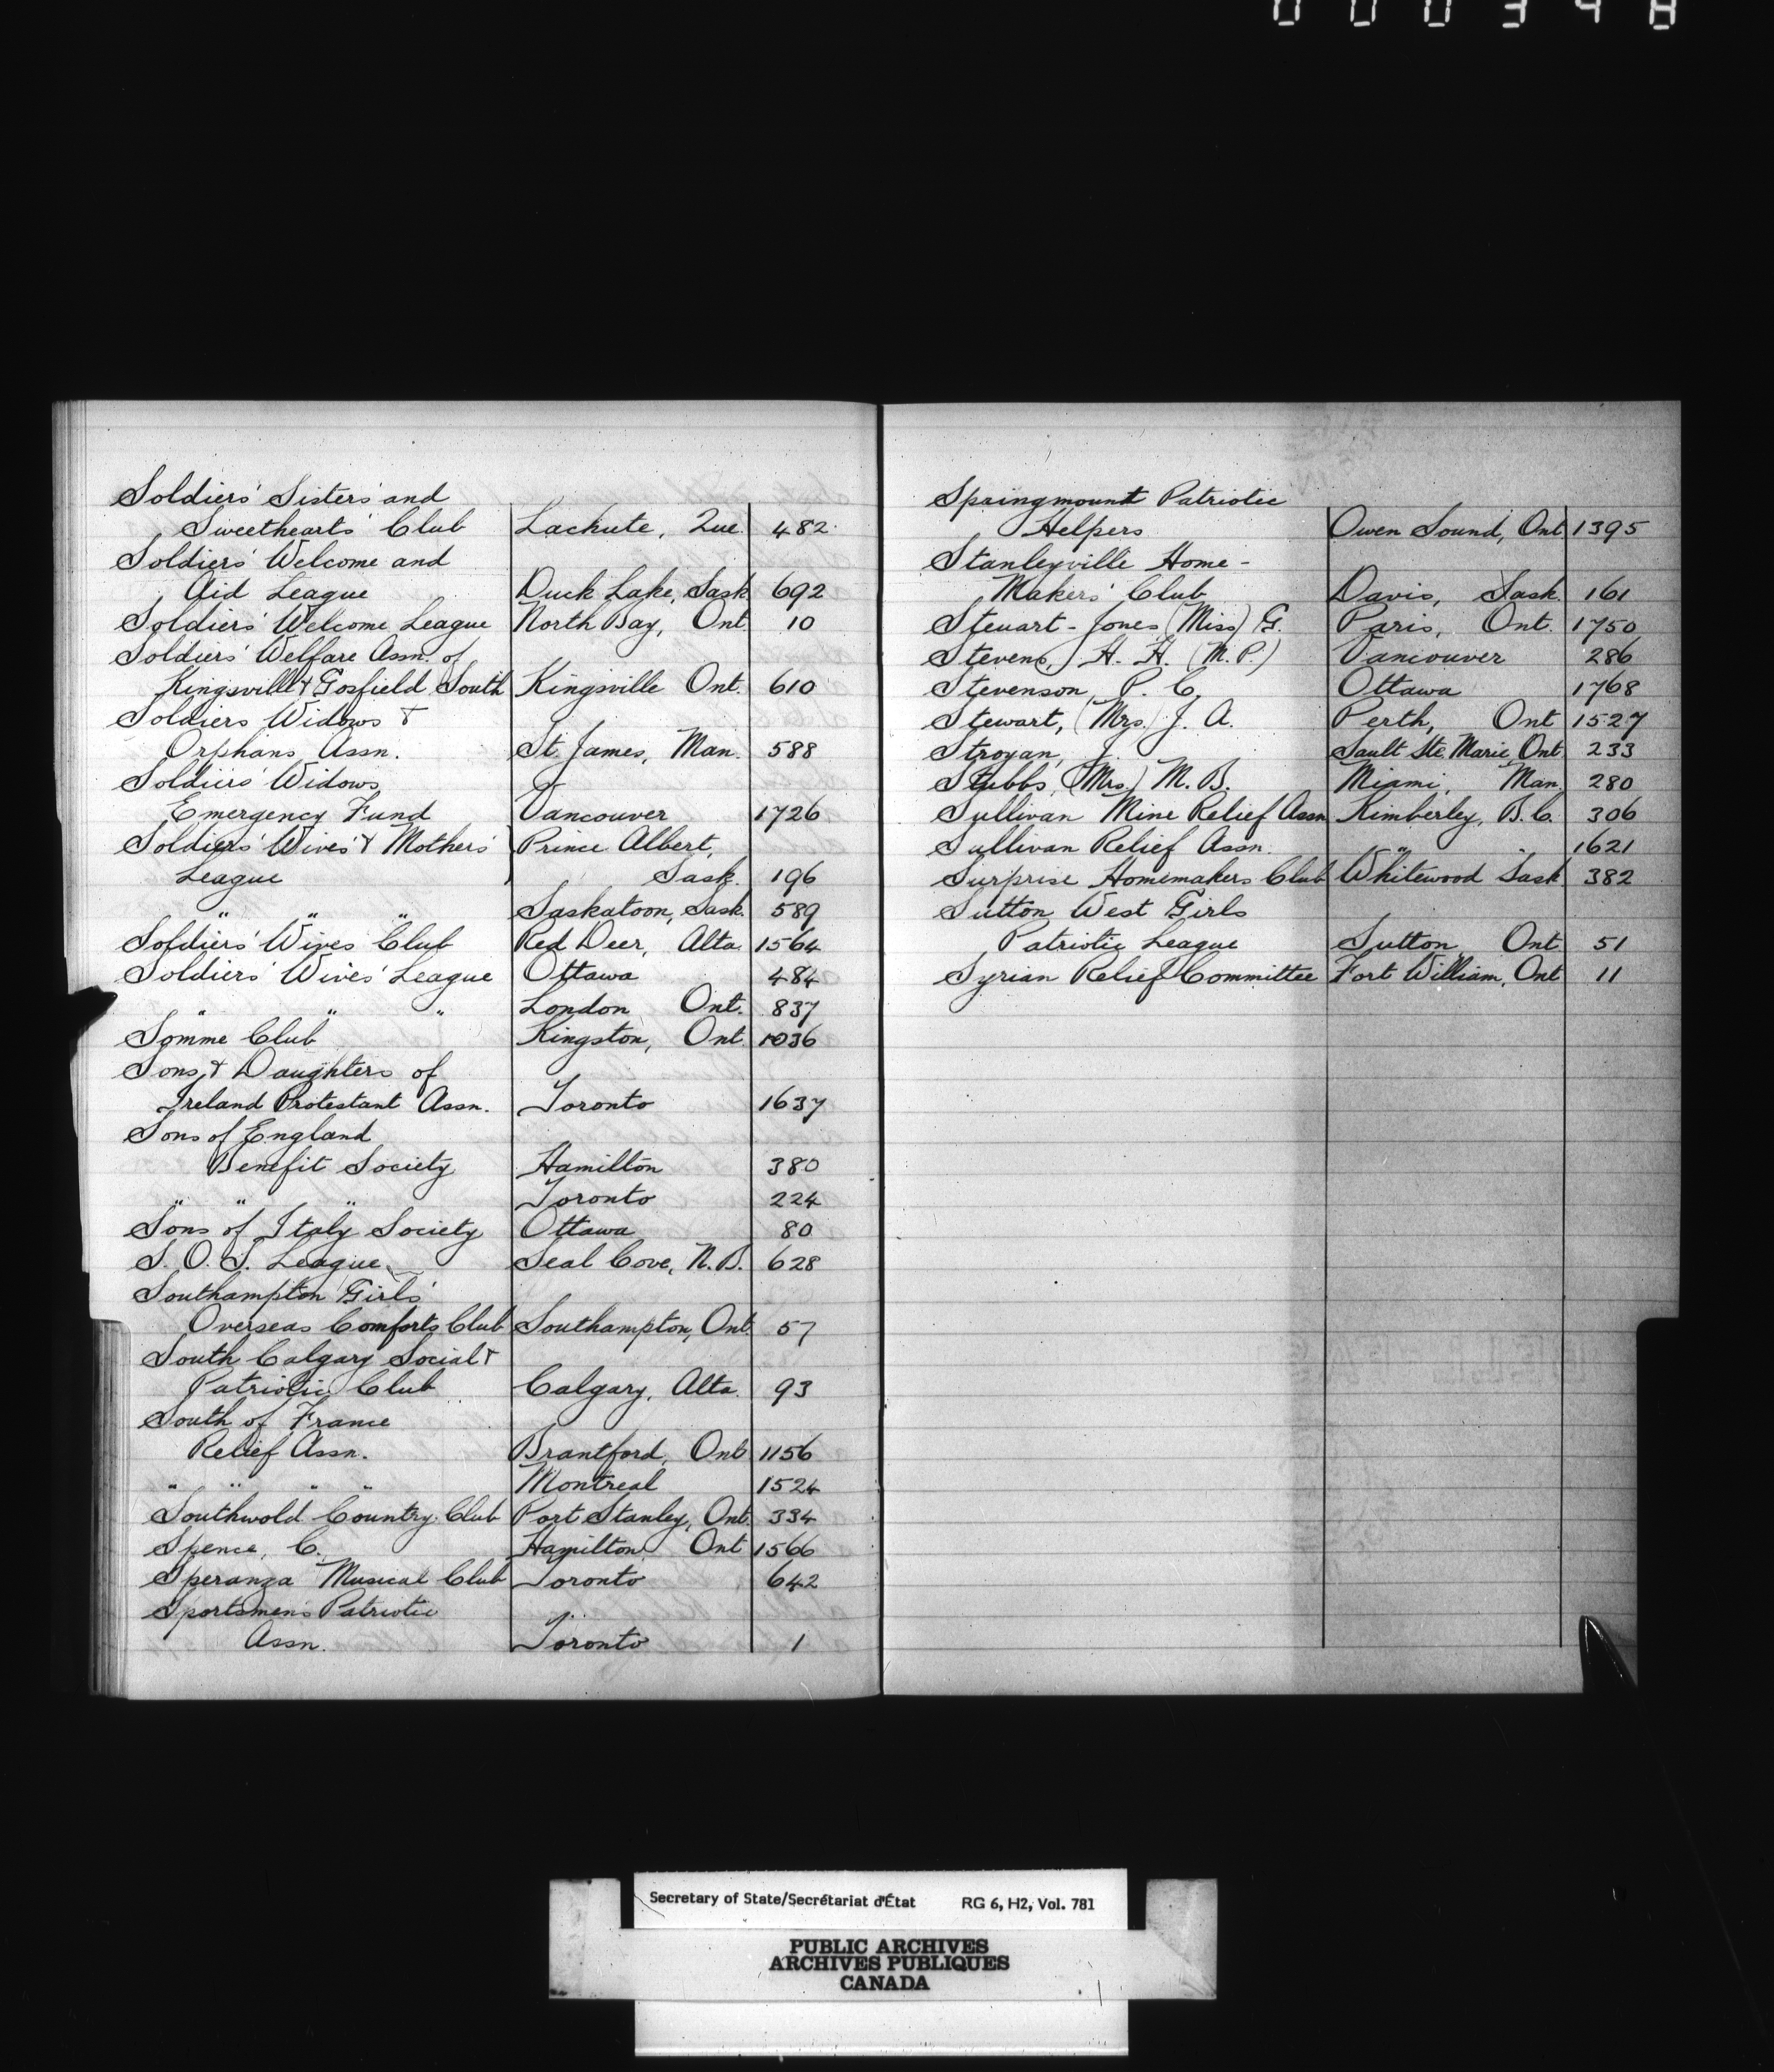 000348
Soldiers' Sisters' and
Sweethearts' Club Lachute, Que. 482
Soldiers' Welcome and
Aid League Duck Lake, Sask 692
Soldiers' Welcome League North Bay, Ont. 10
Soldiers' Welfare Assn. of
Kingsville & Gosfield South Kingsville Ont. 610
Soldiers Widows &
Orphans Assn. St. James, Man. 588
Soldiers' Widows
Emergency Fund Vancouver 1726
Soldiers' Wives' & Mothers' Prince Albert,
League Sask. 196
" " " Saskatoon, Sask. 589
Soldiers' Wives Club Red Deer, Alta. 1564
Soldiers' Wives' League Ottawa 484
" " " London Ont. 837
Somme Club Kingston, Ont. 1036
Sons & Daughters of
Ireland Protestant Assn. Toronto 1637
Sons of England
Benefit Society Hamilton 380
" " " Toronto 224
Sons of Italy Society Ottawa 80
S. O. S. League Seal Cove, N.B. 628
Southampton Girls'
Overseas Comforts Club Southampton, Ont. 57
South Calgary Social &
Patriotic Club Calgary, Alta. 93
South of France
Relief Assn. Brantford, Ont 1156
" " " " Montreal 1524
Southwold Country Club Port Stanley, Ont. 334
Spence, C. Hamilton Ont 1566
Speranza Musical Club Toronto 642
Sportsmen's Patriotic
Assn. Toronto 1
Springmount Patriotic
Helpers Owen Sound, Ont 1395
Stanleyville Home-
Makers' Club Davis, Sask. 161
Steuart-Jones (Miss) G. Paris, Ont. 1750
Stevens, H. H. (M.P.) Vancouver 286
Stevenson, P. C. Ottawa 1768
Stewart, (Mrs.) J. A. Perth, Ont 1527
Stroyan, J. Sault Ste. Marie, Ont 233
Stubbs, (Mrs.) M. B. Miami, Man. 280
Sullivan Mine Relief Assn Kimberley, B.C. 306
Sullivan Relief Assn. " " 1621
Surprise Homemakers Club Whitewood Sask 382
Sutton West Girls
Patriotic League Sutton Ont 51
Syrian Relief Committee Fort William, Ont 11
Secretary of State/Secrétariat d'État RG 6, H2, Vol. 781
PUBLIC ARCHIVES
ARCHIVES PUBLIQUES
CANADA